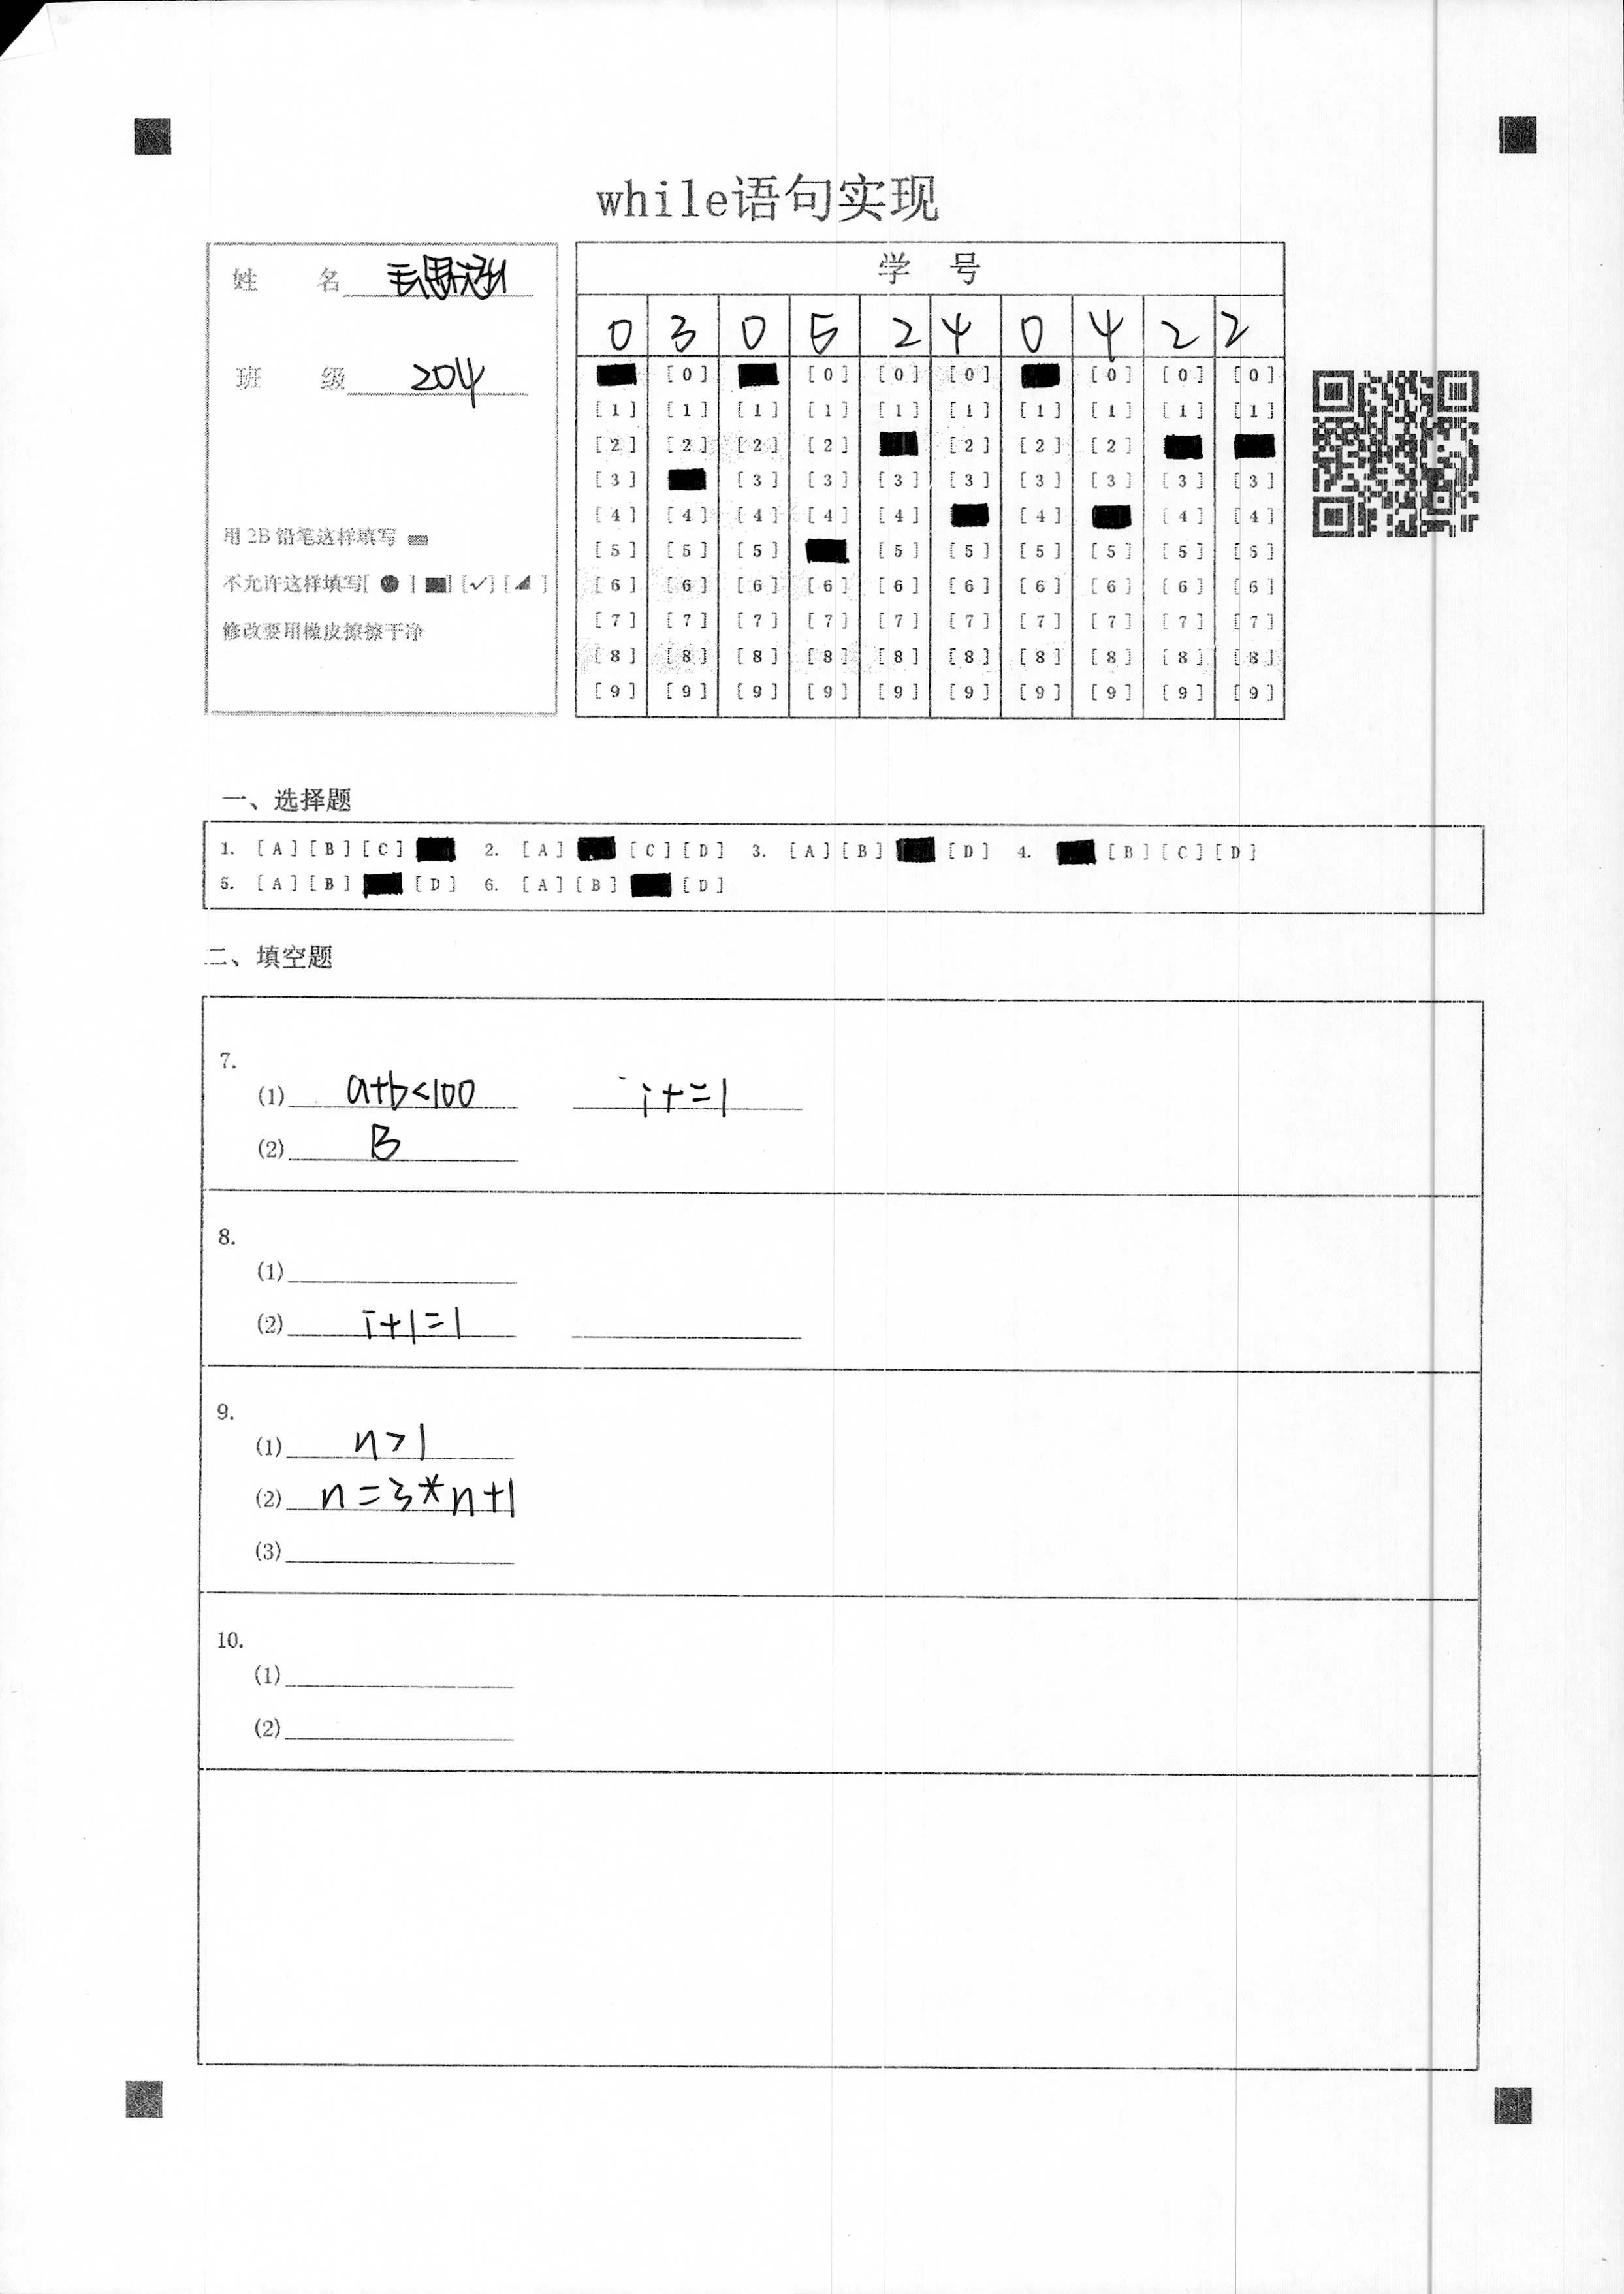 while语句实现
姓 名
班 级 204
用 2B 铅笔这样填写
不允许这样填写[ ● ] ■] [✓] [◢ ]
修改要用橡皮擦擦干净
学 号
0 3 0 5 2 4 0 4 2 2
[0] [0] [0] [0] [0] [0] [0]
[1] [1] [1] [1] [1] [1] [1] [1] [1] [1]
[2] [2] [2] [2] [2] [2] [2]
[3] [3] [3] [3] [3] [3] [3] [3] [3]
[4] [4] [4] [4] [4] [4] [4] [4]
[5] [5] [5] [5] [5] [5] [5] [5] [5]
[6] [6] [6] [6] [6] [6] [6] [6] [6] [6]
[7] [7] [7] [7] [7] [7] [7] [7] [7] [7]
[8] [8] [8] [8] [8] [8] [8] [8] [8] [8]
[9] [9] [9] [9] [9] [9] [9] [9] [9] [9]
一、选择题
1. [A] [B] [C] 2. [A] [C] [D] 3. [A] [B] [D] 4. [B] [C] [D]
5. [A] [B] [D] 6. [A] [B] [D]
二、填空题
7.
(1) a+b<100 i+=1
(2) B
8.
(1)
(2) i+1=1
9.
(1) n>1
(2) n=3*n+1
(3)
10.
(1)
(2)